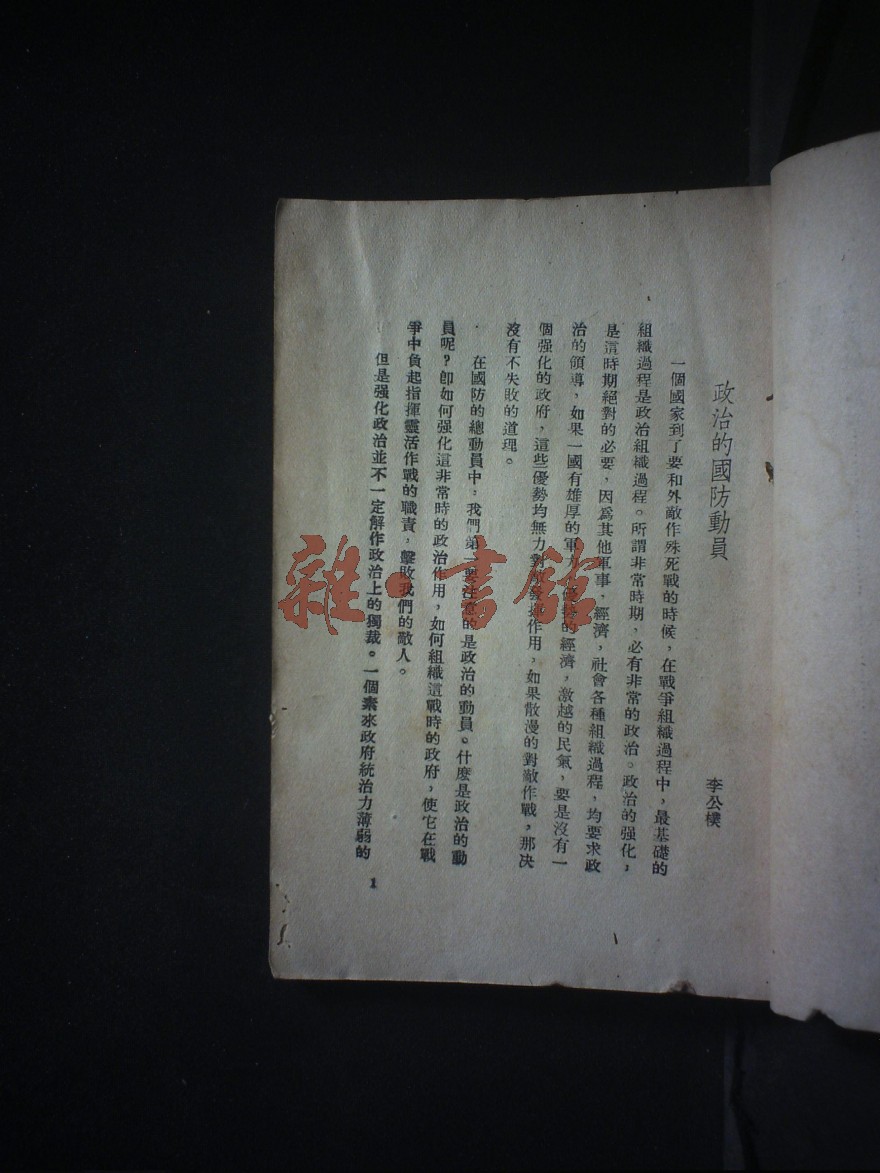 政治的國防動員
李公樸
一個國家到了要和外敵作殊死戰的時候，在戰爭組織過程中，最基礎的
組織過程是政治組織過程。所謂非常時期，必有非常的政治。政治的强化，
是這時期絕對的必要，因爲其他軍事，經濟，社會各種組織過程，均要求政
治的領導，如果一國有雄厚的軍力，優勢的經濟，激越的民氣，要是沒有一
個强化的政府，這些優勢均無力對敵發揮作用，如果散漫的對敵作戰，那决
沒有不失敗的道理。
在國防的總動員中，我們第一要注意的是政治的動員。什麽是政治的動
員呢？卽如何强化這非常時的政治作用，如何組織這戰時的政府，使它在戰
爭中負起指揮靈活作戰的職責，擊敗我們的敵人。
但是强化政治並不一定解作政治上的獨裁。一個素來政府統治力薄弱的
1
雜·書館